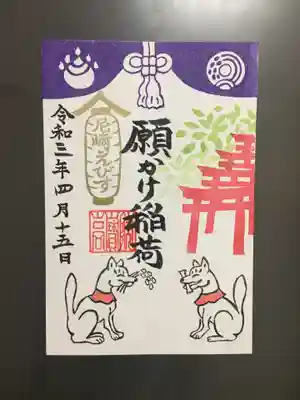 願いがけ稲荷
尼崎えびす
令和三年四月十五日